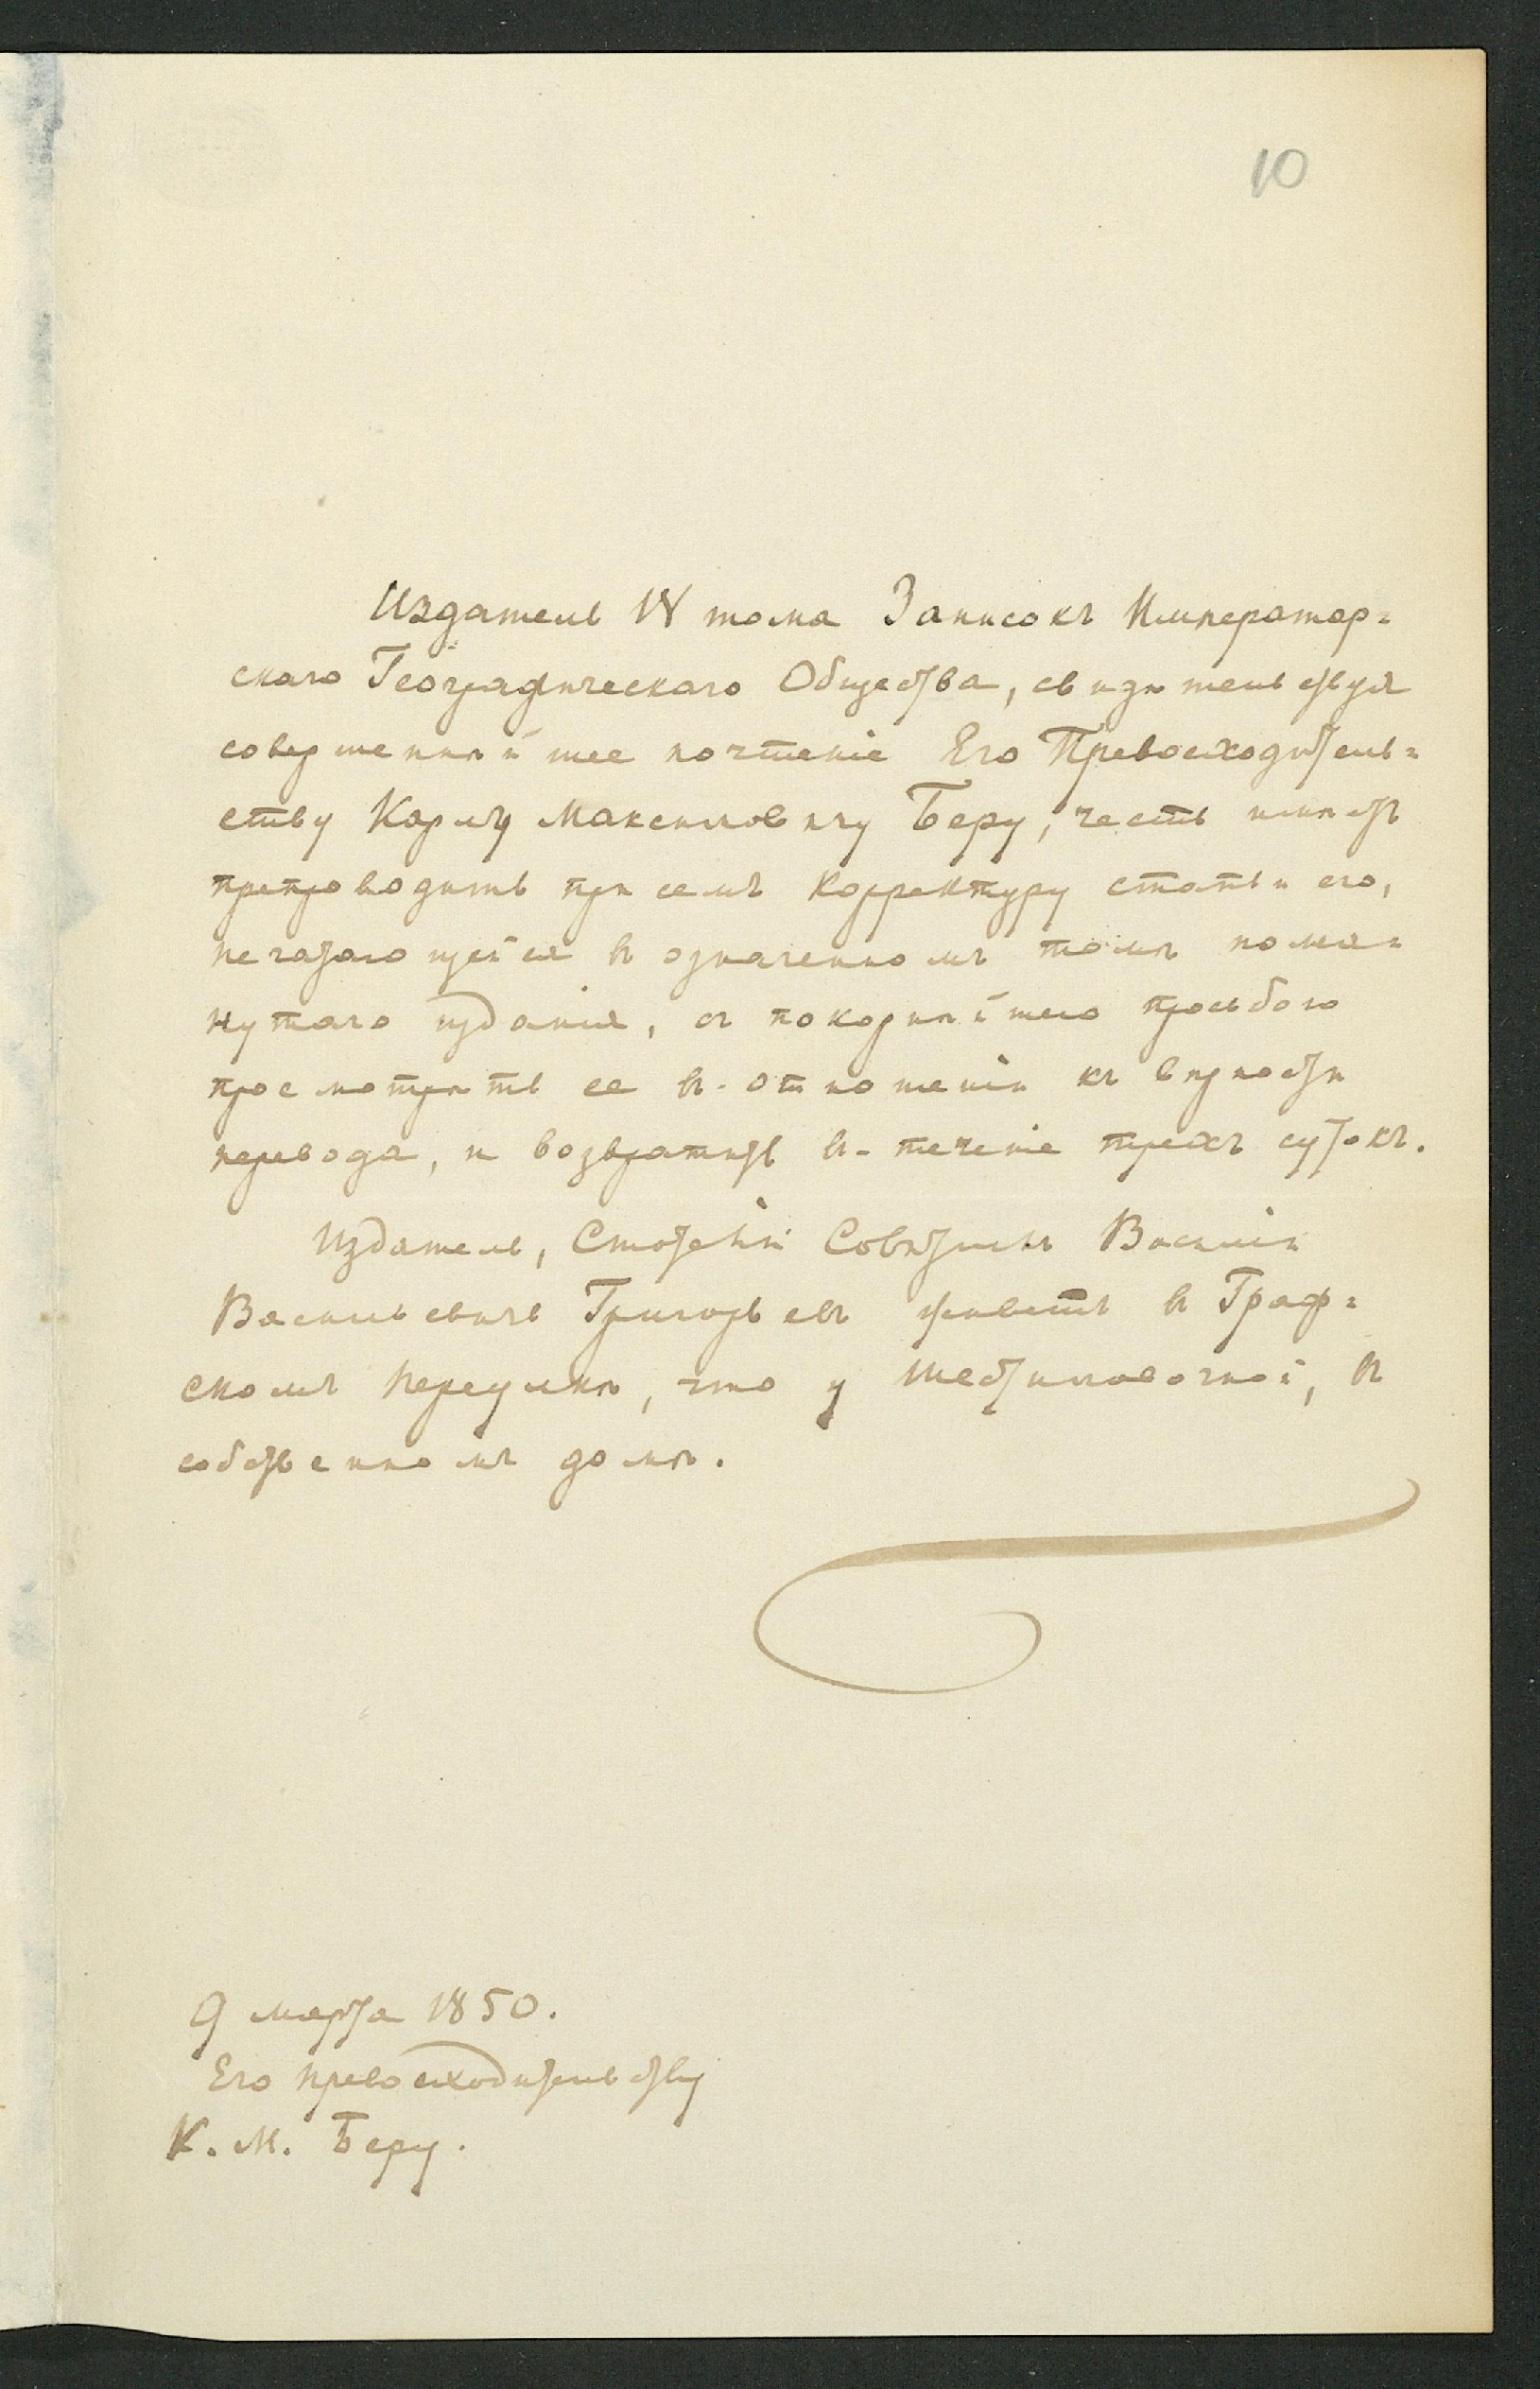 10
Издатель IV тома Записокъ Император=
скаго Географическаго Общества, свидѣтельствуя
совершеннѣйшее почтеніе Его Превосходитель=
ству Карлу Максимовичу Беру, честь имѣетъ
препроводить при семъ корректуру статьи его,
печатающейся въ означенномъ томѣ помя=
нутаго изданія, съ покорнѣйшею просьбою
просмотрѣть ее въ-отношеніи къ вѣрности
перевода, и возвратить въ-теченіе трехъ сутокъ.
Издатель, Статскій Совѣтникъ Василій
Васильевичъ Григорьевъ живетъ въ Граф=
скомъ переулкѣ, что у Шестилавочной, въ
собственномъ домѣ.
9 марта 1850.
Его превосходительству
К. М. Беру.